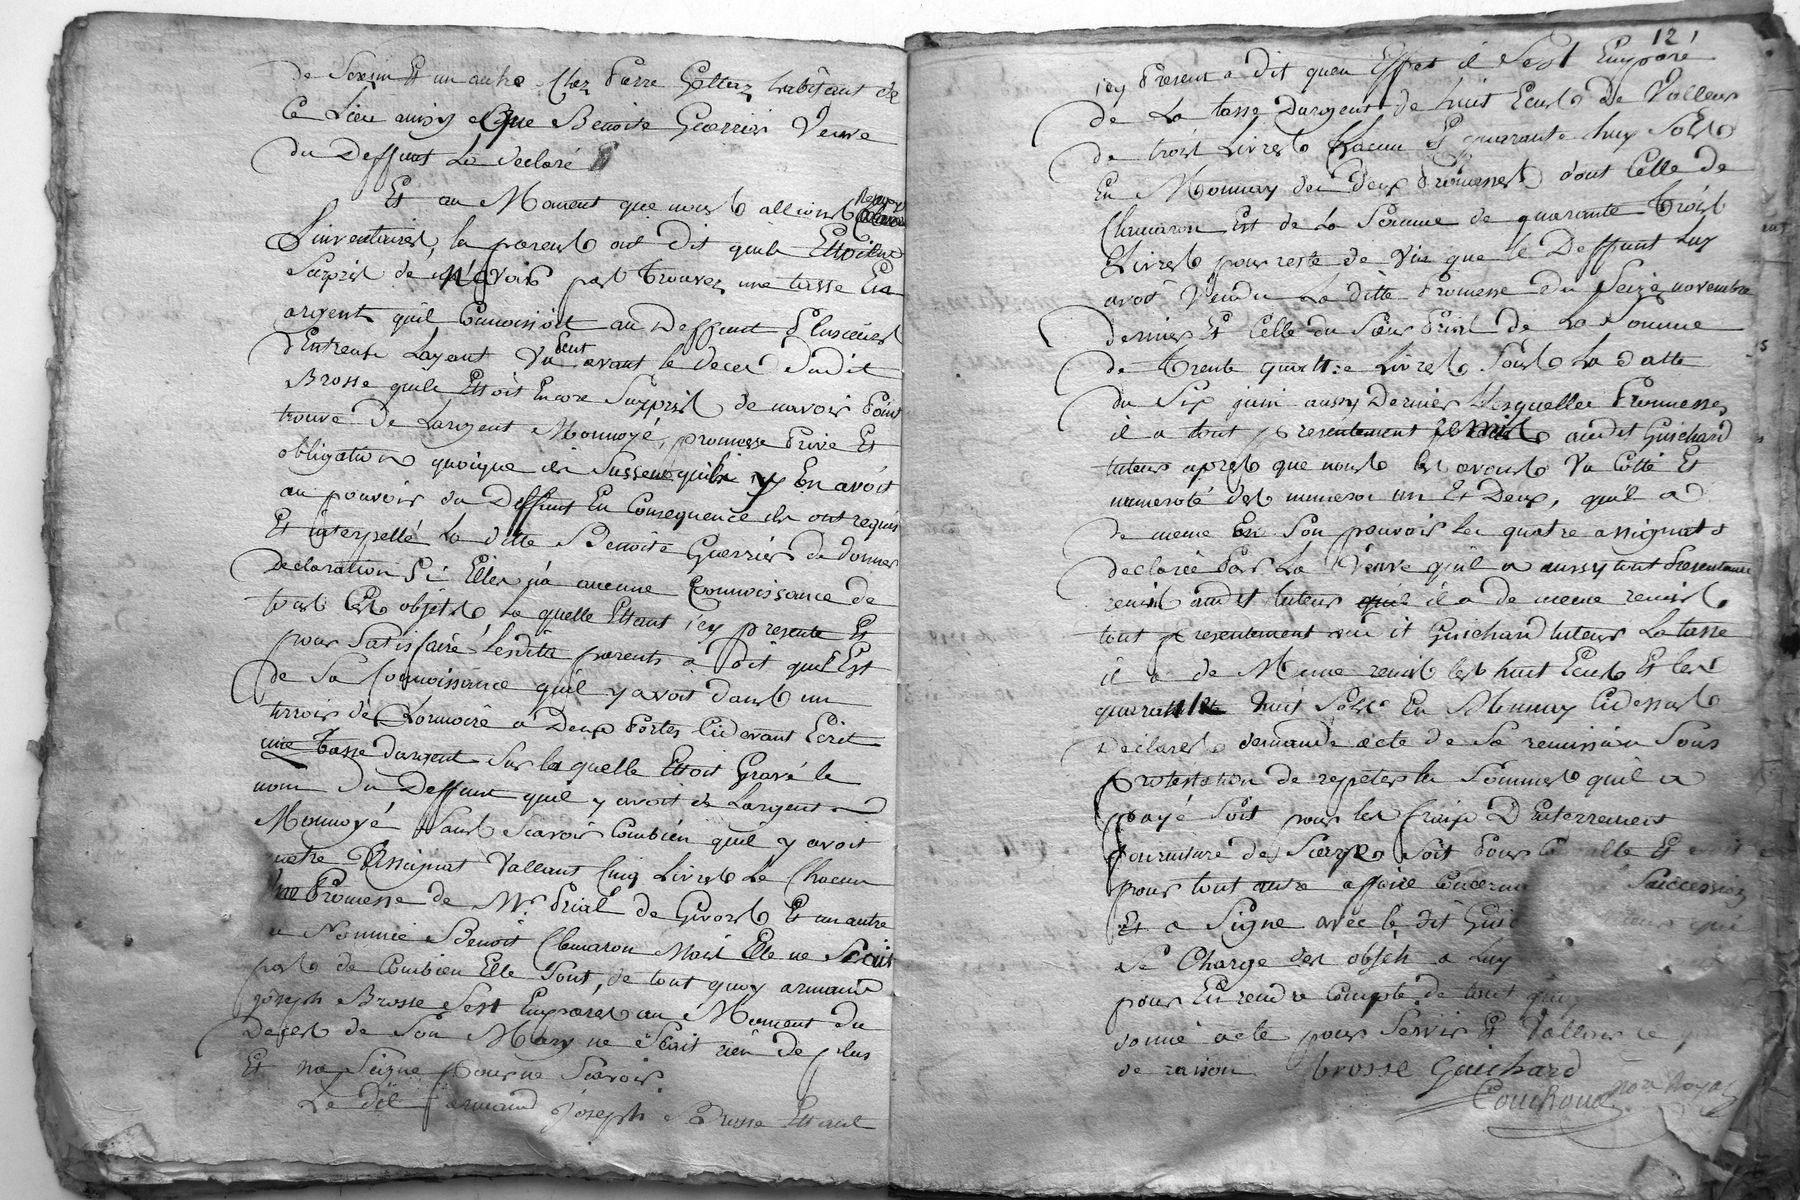 de Serin Et un autre Chez Pierre Gellas habitant de
Ce Lieu ainsy Que Benoite Guerrier Veuve
du Deffunt La declaré
Et au Moment que nous allions
Linventaires, les parents ont dit quils Ettoient
Surpris de N'avoir pas trouvez une tasse En
argent quil Connoissoit au Deffunt Plusieurs
d'Entreux Layant Vu avant le deces dudit
Brosse quils Ettoit Encore Surpris de navoir Point
trouvé de Largent Monnoyé, promesse Privé Et
obligation quoique ils Sussent quil y En avoit
au pouvoir du Deffunt En Consequence ils ont requis
Et interpellé La ditte Benoite Guerrier de donner
declaration Si Elle n'a aucune Connoissance de
tous Ces objets, La quelle Ettant icy presente Et
pour Satisfaire Lesdits parents a Dit quil Est
de Sa Connoissance quil y avoit dans un
tirroir de Larmoire a Deux Portes Cidevant Ecrit
une Tasse dargent Sur la quelle Ettoit Gravé le
nom Du Deffunt quil y avoit de Largent
Monnoyé Sans Scavoir Combien quil y avoit
quatre Assignat Vallant Cinq Livres Le Chacun
une Promesse de Mr Prial de Givors Et un autre
Nommé Benoit Chmaron Mais Elle ne Scait
pas de Combien Elle Sont, de tout quoy armand
joseph Brosse Sest Emparé au Moment du
Deces de Son Mary ne Scait rien de plus
Et na Signe Pour ne Scavoir.
Le dit armand joseph Brosse Ettant
121
icy Present a dit quen Effet il Sest Emparé
de La tasse Dargent de huit Ecus De Valleur
de trois Livres Chacun Et quarante huy Sols
En Monnoy des Deux Promesses dont Celle de
Chmaron Est de La Somme de quarante trois
Livres pour reste de Vin que le Deffunt Luy
avoit Vendu La ditte Promesse du Seize novembre
dernier Et Celle du Sieur Prial de La Somme
de trente quattre Livres Sous La datte
du Six juin aussy Dernier Lesquelles Promesses
il a tout presentement remis audit Guichard
tuteur apres que nous les avons Vu Cotté Et
numeroté des numero un Et Deux, quil a
de meme En Son pouvoir les quatre assignats
declarée Par La Veuve quil a aussy tout Presentement
remis audit tuteur il a de meme remis
tout presentement au it Guichard tuteur La tasse
il a de Meme remis les huit Ecus Et les
quarante huit Sols En Monnoy Cidessus
Declarés demande acte de Sa remission Sous
Protestation de repeter les Sommes quil a
payé Soit pour les fraix D'Enterrement
fourniture de Soit Pour Et
pour tout autre affaire Succession
Et a Signe avec le dit
Se Charge des objets a Luy
pour En rendre Compte de tout
donné acte pour Servir Et Valloir ce
de raison Brosse Guichard
Couchoud nore Royal